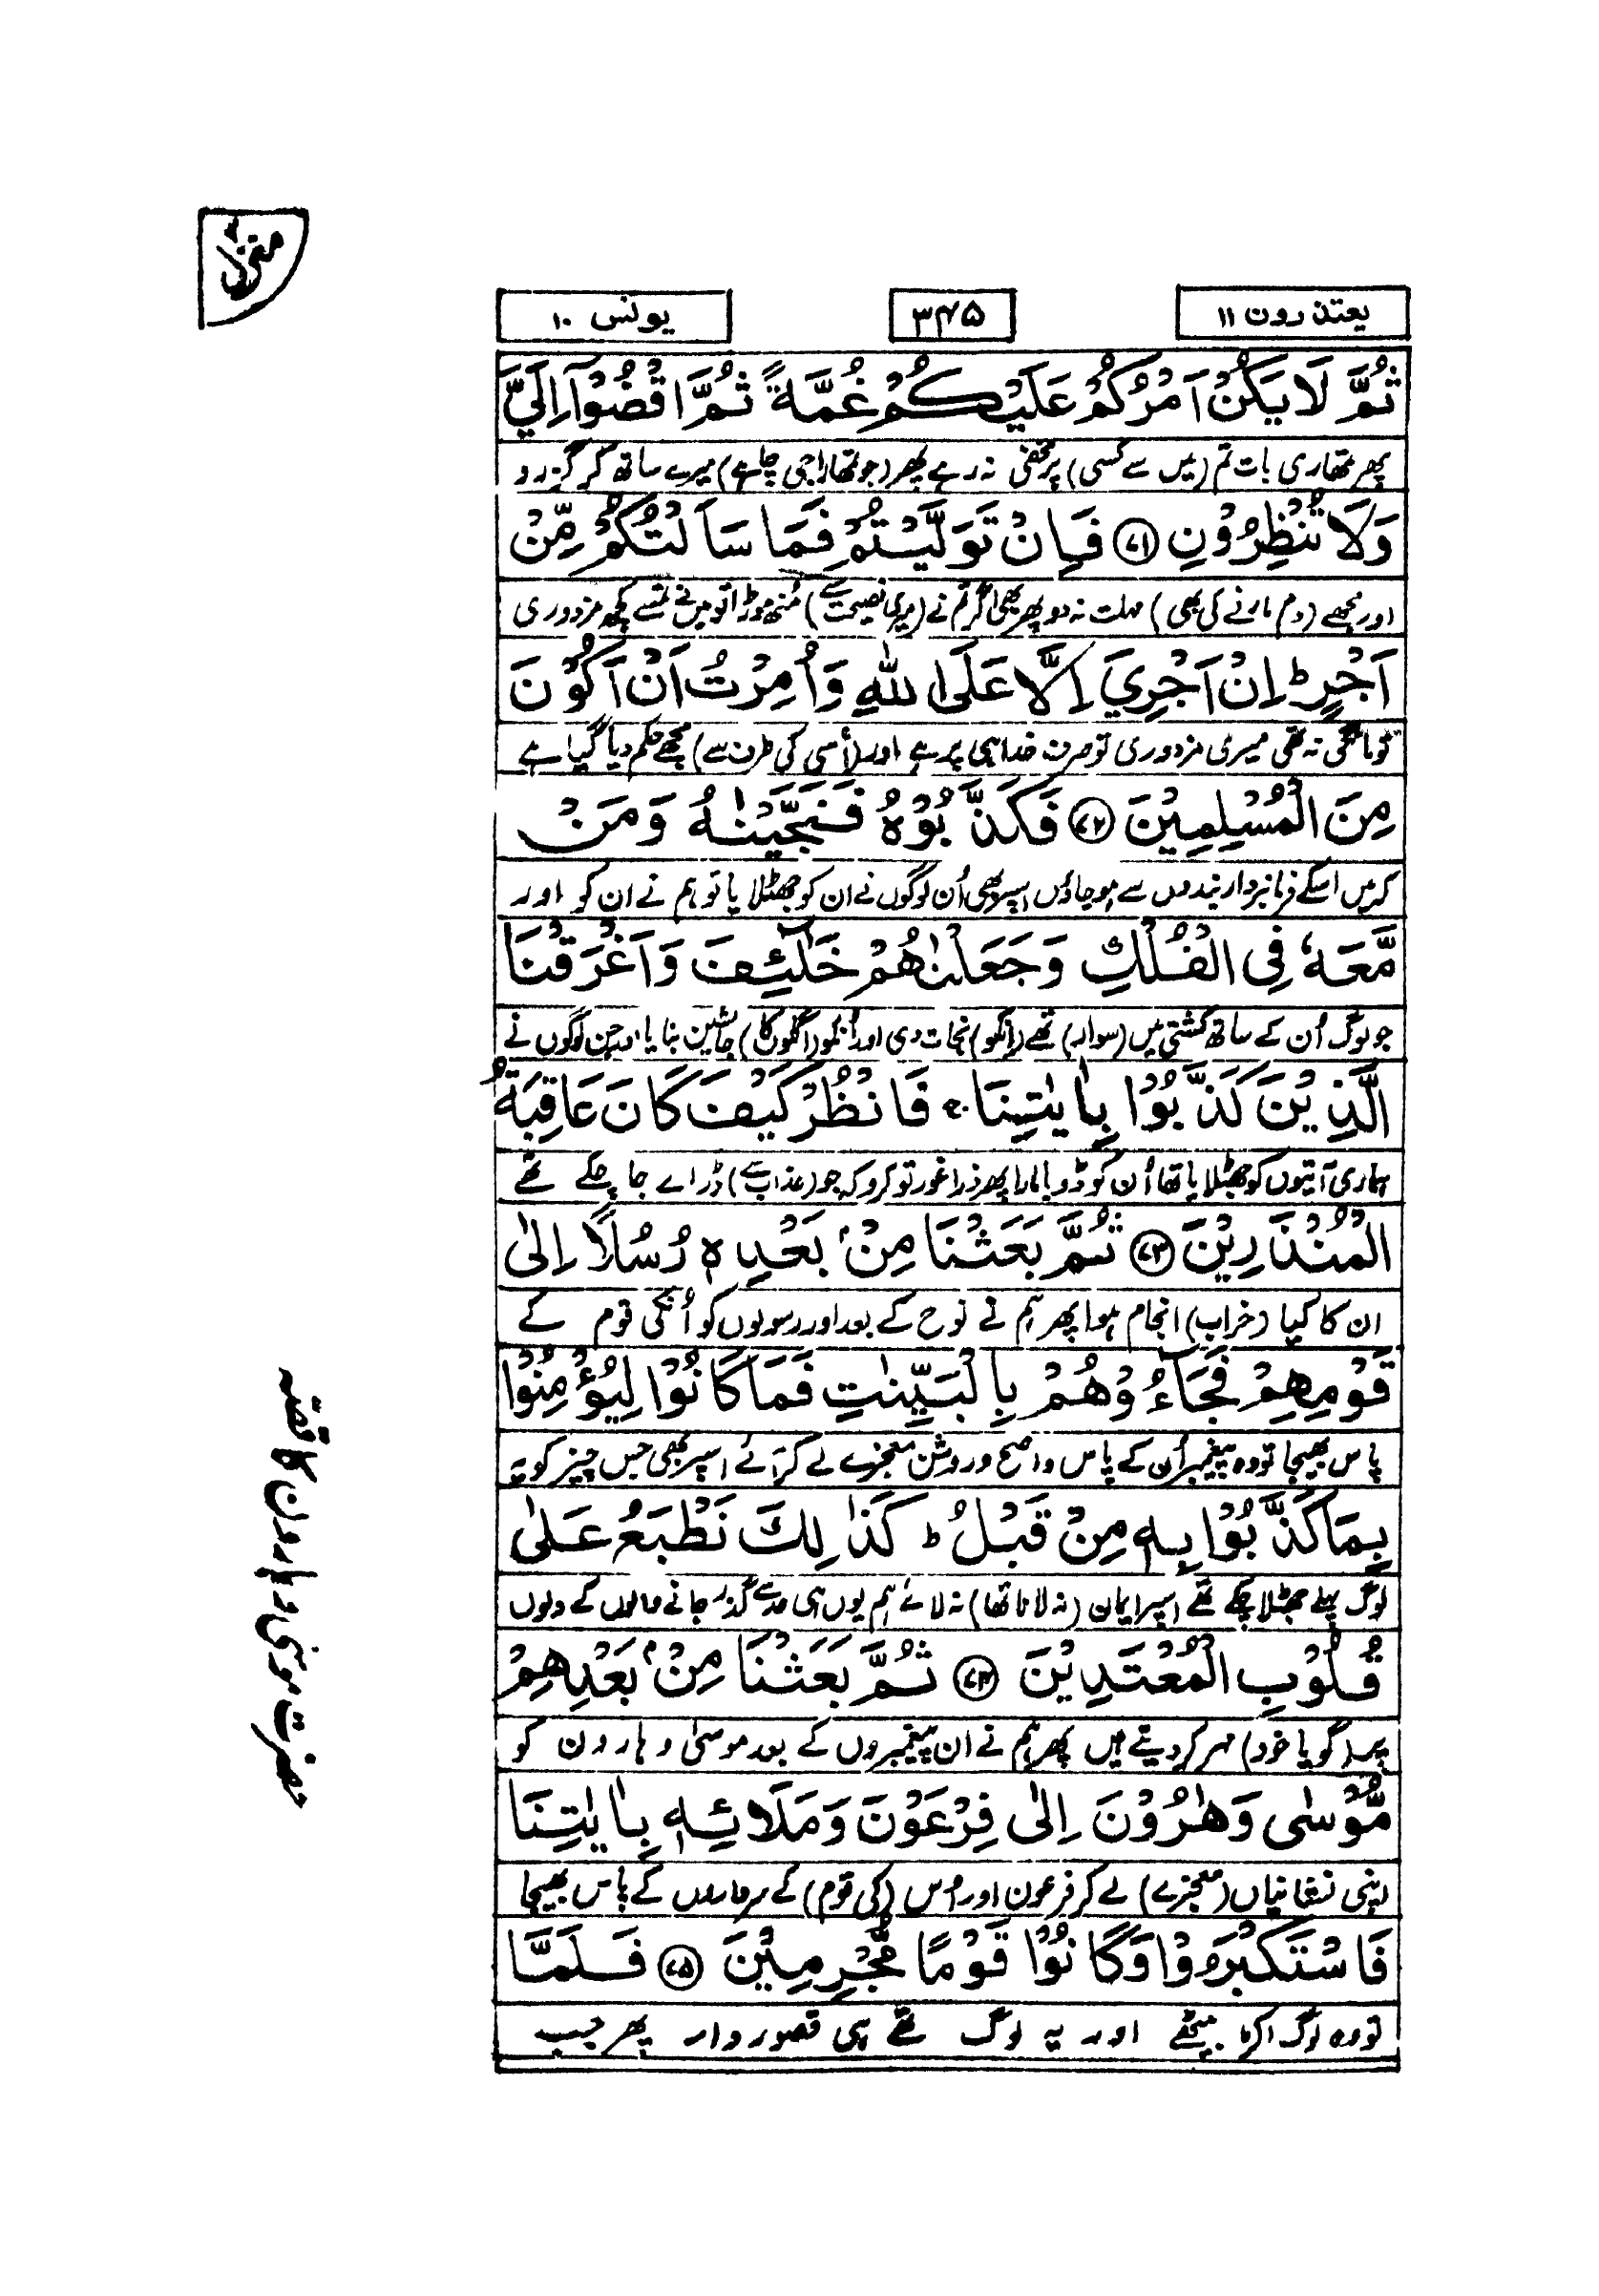 یعتذرون ۱۱
۳۴۵
یونس ۱۰
ثُمَّ لَا يَكُنْ اَمْرُكُمْ عَلَيْكُمْ غُمَّةً ثُمَّ اقْضُوْۤا اِلَيَّ
پھر تمھاری بات تم (میں سے کسی) پر مخفی نہ رہے پھر (جو تمھارا جی چاہے) میرے ساتھ کر گزرو
وَلَا تُنْظِرُوْنِ ۷۱ فَاِنْ تَوَلَّيْتُمْ فَمَا سَاَلْتُكُمْ مِّنْ
اور مجھے (دم مارنے کی بھی) مہلت نہ دو پھر بھی اگر تم نے (میری نصیحت سے) منھ موڑا تو میں نے تم سے کچھ مزدوری
اَجْرٍ ؕ اِنْ اَجْرِيَ اِلَّا عَلَى اللّٰهِ وَاُمِرْتُ اَنْ اَكُوْنَ
تو مانگی نہ تھی میری مزدوری تو صرف خدا ہی پر ہے اور (اُسی کی طرف سے) مجھے حکم دیا گیا ہے
مِنَ الْمُسْلِمِيْنَ ۷۲ فَكَذَّبُوْهُ فَنَجَّيْنٰهُ وَمَنْ
کہ میں اسکے فرمانبردار بندوں سے ہو جاؤں اسپر بھی اُن لوگوں نے ان کو جھٹلایا تو ہم نے ان کو اور
مَّعَهٗ فِي الْفُلْكِ وَجَعَلْنٰهُمْ خَلٰٓئِفَ وَاَغْرَقْنَا
جو لوگ اُن کے ساتھ کشتی میں (سوار) تھے (انکو) نجات دی اور اُنکو (اگلوں کا) جانشین بنایا اور جن لوگوں نے
الَّذِيْنَ كَذَّبُوْا بِاٰيٰتِنَا ۚ فَانْظُرْ كَيْفَ كَانَ عَاقِبَةُ
ہماری آیتوں کو جھٹلایا تھا اُن کو ڈوبا مارا پھر ذرا غور تو کرو کہ جو (عذاب سے) ڈراے جا چکے تھے
الْمُنْذَرِيْنَ ۷۳ ثُمَّ بَعَثْنَا مِنْۢ بَعْدِهٖ رُسُلًا اِلٰى
ان کا کیا (خراب) انجام ہوا پھر ہم نے نوح کے بعد اور رسولوں کو اُنکی قوم کے
قَوْمِهِمْ فَجَآءُوْهُمْ بِالْبَيِّنٰتِ فَمَا كَانُوْا لِيُؤْمِنُوْا
پاس بھیجا تو وہ پیغمبر اُن کے پاس واضح و روشن معجزے لے کر آئے اسپر بھی جس چیز کو یہ
بِمَا كَذَّبُوْا بِهٖ مِنْ قَبْلُ ؕ كَذٰلِكَ نَطْبَعُ عَلٰى
لوگ پہلے جھٹلا چکے تھے اسپر ایمان (نہ لانا تھا) نہ لائے ہم یوں ہی حد سے گذر جانے والوں کے دلوں
قُلُوْبِ الْمُعْتَدِيْنَ ۷۴ ثُمَّ بَعَثْنَا مِنْۢ بَعْدِهِمْ
پر (گویا خود) مہر کر دیتے ہیں پھر ہم نے ان پیغمبروں کے بعد موسیٰ و ہارون کو
مُّوْسٰى وَهٰرُوْنَ اِلٰى فِرْعَوْنَ وَمَلَائِهٖ بِاٰيٰتِنَا
اپنی نشانیاں (معجزے) لے کر فرعون اور اس (کی قوم) کے سرداروں کے پاس بھیجا
فَاسْتَكْبَرُوْا وَكَانُوْا قَوْمًا مُّجْرِمِيْنَ ۷۵ فَلَمَّا
تو وہ لوگ اکڑ بیٹھے اور یہ لوگ تھے ہی قصوروار پھر جب
حضرت موسیٰ و ہارون کا قصّہ